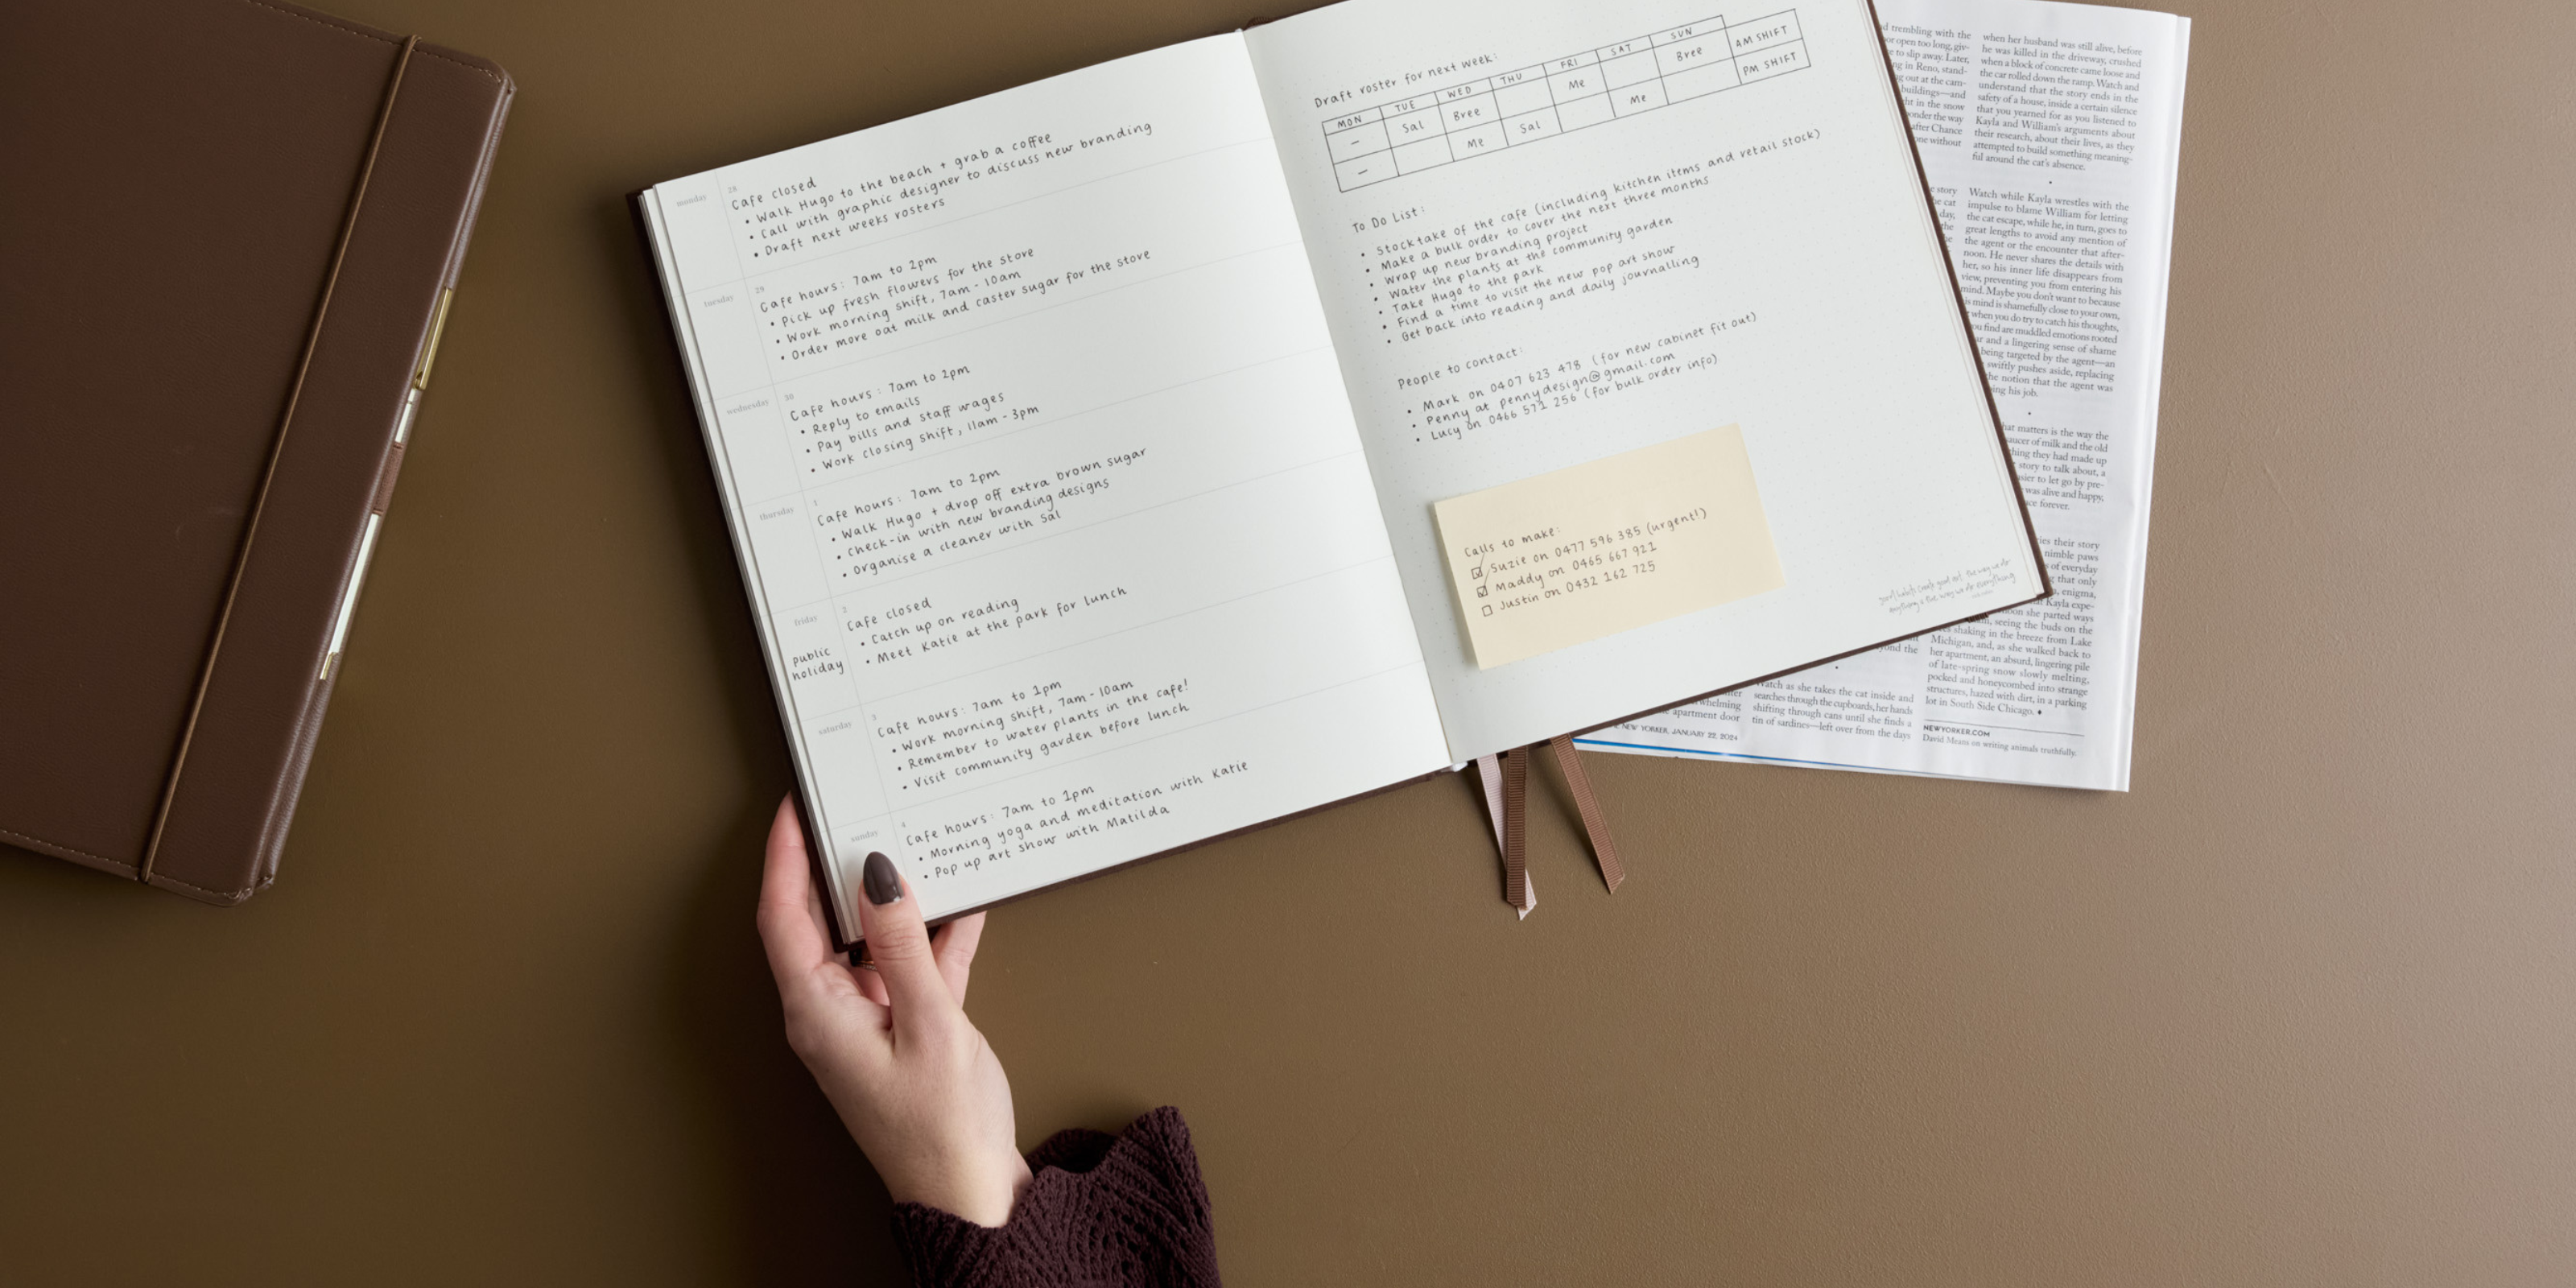 monday
28
Cafe closed
• Walk Hugo to the beach + grab a coffee
• Call with graphic designer to discuss new branding
• Draft next weeks rosters
tuesday
29
Cafe hours: 7am to 2pm
• Pick up fresh flowers for the store
• Work morning shift, 7am - 10am
• Order more oat milk and caster sugar for the store
wednesday
30
Cafe hours: 7am to 2pm
• Reply to emails
• Pay bills and staff wages
• Work closing shift, 11am - 3pm
thursday
1
Cafe hours: 7am to 2pm
• Walk Hugo + drop off extra brown sugar
• Check-in with new branding designs
• Organise a cleaner with Sal
friday
2
public
holiday
Cafe closed
• Catch up on reading
• Meet Katie at the park for lunch
saturday
3
Cafe hours: 7am to 1pm
• Work morning shift, 7am - 10am
• Remember to water plants in the cafe!
• Visit community garden before lunch
sunday
4
Cafe hours: 7am to 1pm
• Morning yoga and meditation with Katie
• Pop up art show with Matilda
Draft roster for next week:
MON TUE WED THU FRI SAT SUN
– Sal Bree Me Bree AM SHIFT
– Me Sal Me PM SHIFT
To Do List:
• Stocktake of the cafe (including kitchen items and retail stock)
• Make a bulk order to cover the next three months
• Wrap up new branding project
• Water the plants at the community garden
• Take Hugo to the park
• Find a time to visit the new pop art show
• Get back into reading and daily journalling
People to contact:
• Mark on 0407 623 478 (for new cabinet fit out)
• Penny at pennydesign@gmail.com
• Lucy on 0466 571 256 (for bulk order info)
Calls to make:
☑ Suzie on 0477 596 385 (urgent!)
☑ Maddy on 0465 667 921
☐ Justin on 0432 162 725
d trembling with the
or open too long, giv-
e to slip away. Later,
ng in Reno, stand-
g out at the cam-
buildings—and
ht in the snow
onder the way
after Chance
one without
when her husband was still alive, before
he was killed in the driveway, crushed
when a block of concrete came loose and
the car rolled down the ramp. Watch and
understand that the story ends in the
safety of a house, inside a certain silence
that you yearned for as you listened to
Kayla and William's arguments about
their research, about their lives, as they
attempted to build something meaning-
ful around the cat's absence.
•
Watch while Kayla wrestles with the
impulse to blame William for letting
the cat escape, while he, in turn, goes to
great lengths to avoid any mention of
the agent or the encounter that after-
noon. He never shares the details with
her, so his inner life disappears from
view, preventing you from entering his
mind. Maybe you don't want to because
is mind is shamefully close to your own,
when you do try to catch his thoughts,
ou find are muddled emotions rooted
ar and a lingering sense of shame
being targeted by the agent—an
swiftly pushes aside, replacing
the notion that the agent was
ing his job.
•
hat matters is the way the
aucer of milk and the old
thing they had made up
story to talk about, a
asier to let go by pre-
was alive and happy,
ce forever.
•
ies their story
nimble paws
of everyday
that only
enigma,
Kayla expe-
she parted ways
seeing the buds on the
shaking in the breeze from Lake
Michigan, and, as she walked back to
her apartment, an absurd, lingering pile
of late-spring snow slowly melting,
pocked and honeycombed into strange
structures, hazed with dirt, in a parking
lot in South Side Chicago. ♦
NEWYORKER.COM
David Means on writing animals truthfully.
whelming
apartment door
Watch as she takes the cat inside and
searches through the cupboards, her hands
shifting through cans until she finds a
tin of sardines—left over from the days
NEW YORKER, JANUARY 22, 2024